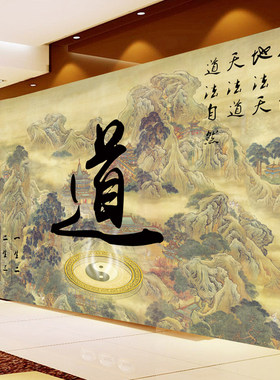 地法天
天法道
道法自然
道
一生二
二生三